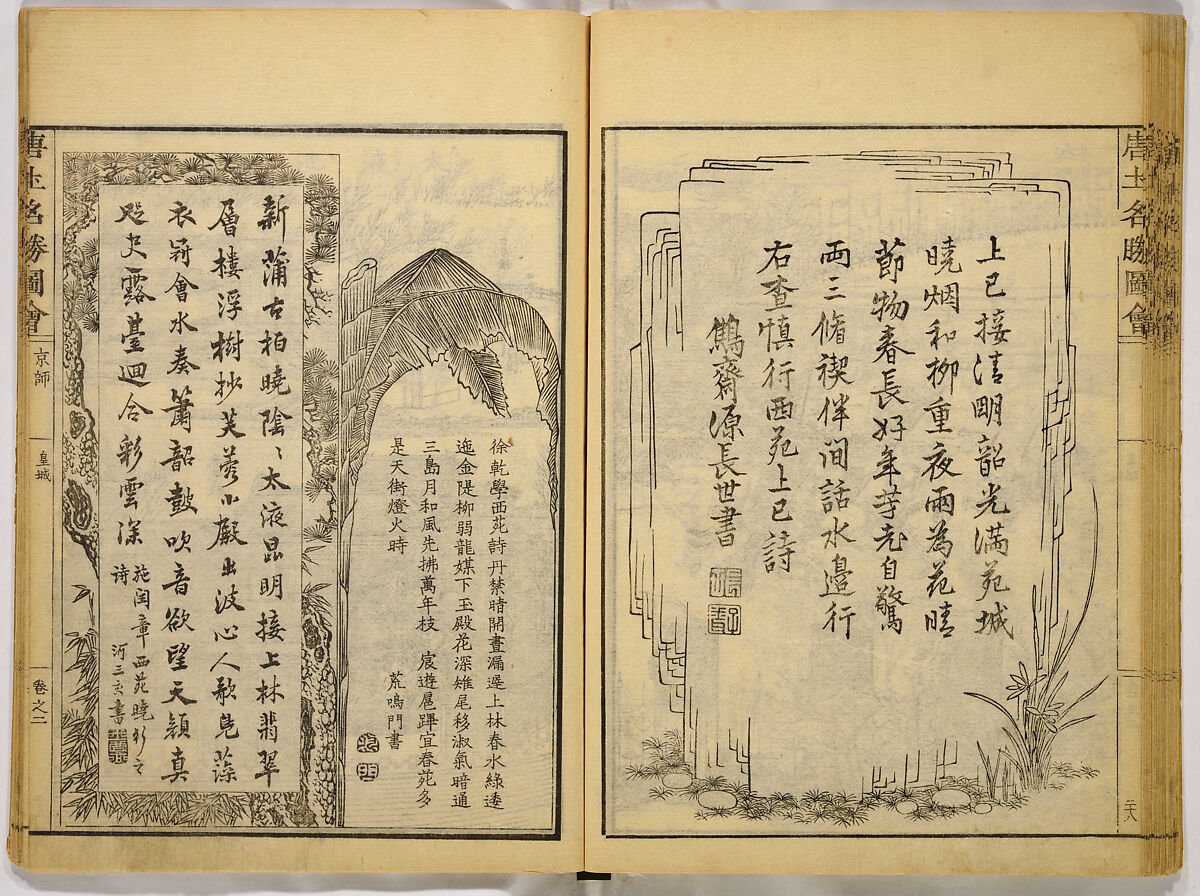 唐土名勝圖會
上巳接清明韶光滿苑城
曉烟和柳重夜雨為花晴
節物春長好年芳老自驚
兩三脩禊伴間話水邊行
右查慎行西苑上巳詩
齋源長世書
徐乾學西苑詩丹禁晴開晝漏遲上林春水綠逶
迤金隄柳弱龍媒下玉殿花深雉尾移淑氣暗通
三島月和風先拂萬年枝 宸遊扈蹕宜春苑多
是天街燈火時
荒鳴門書
新蒲古柏曉陰〻太液昆明接上林翡翠
層樓浮樹杪芙蓉小殿出波心人歌鳧藻
衣冠會水奏簫韶鼓吹音欲望天顏真
咫尺露臺迴合彩雲深
施閏章西苑曉行之
詩 河三亥書
唐土名勝圖會 京師 皇城 卷之二